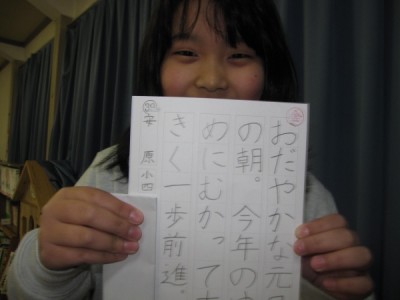 おだやかな元
の朝。今年の
めにむかって
きく一歩前進。
安原小四